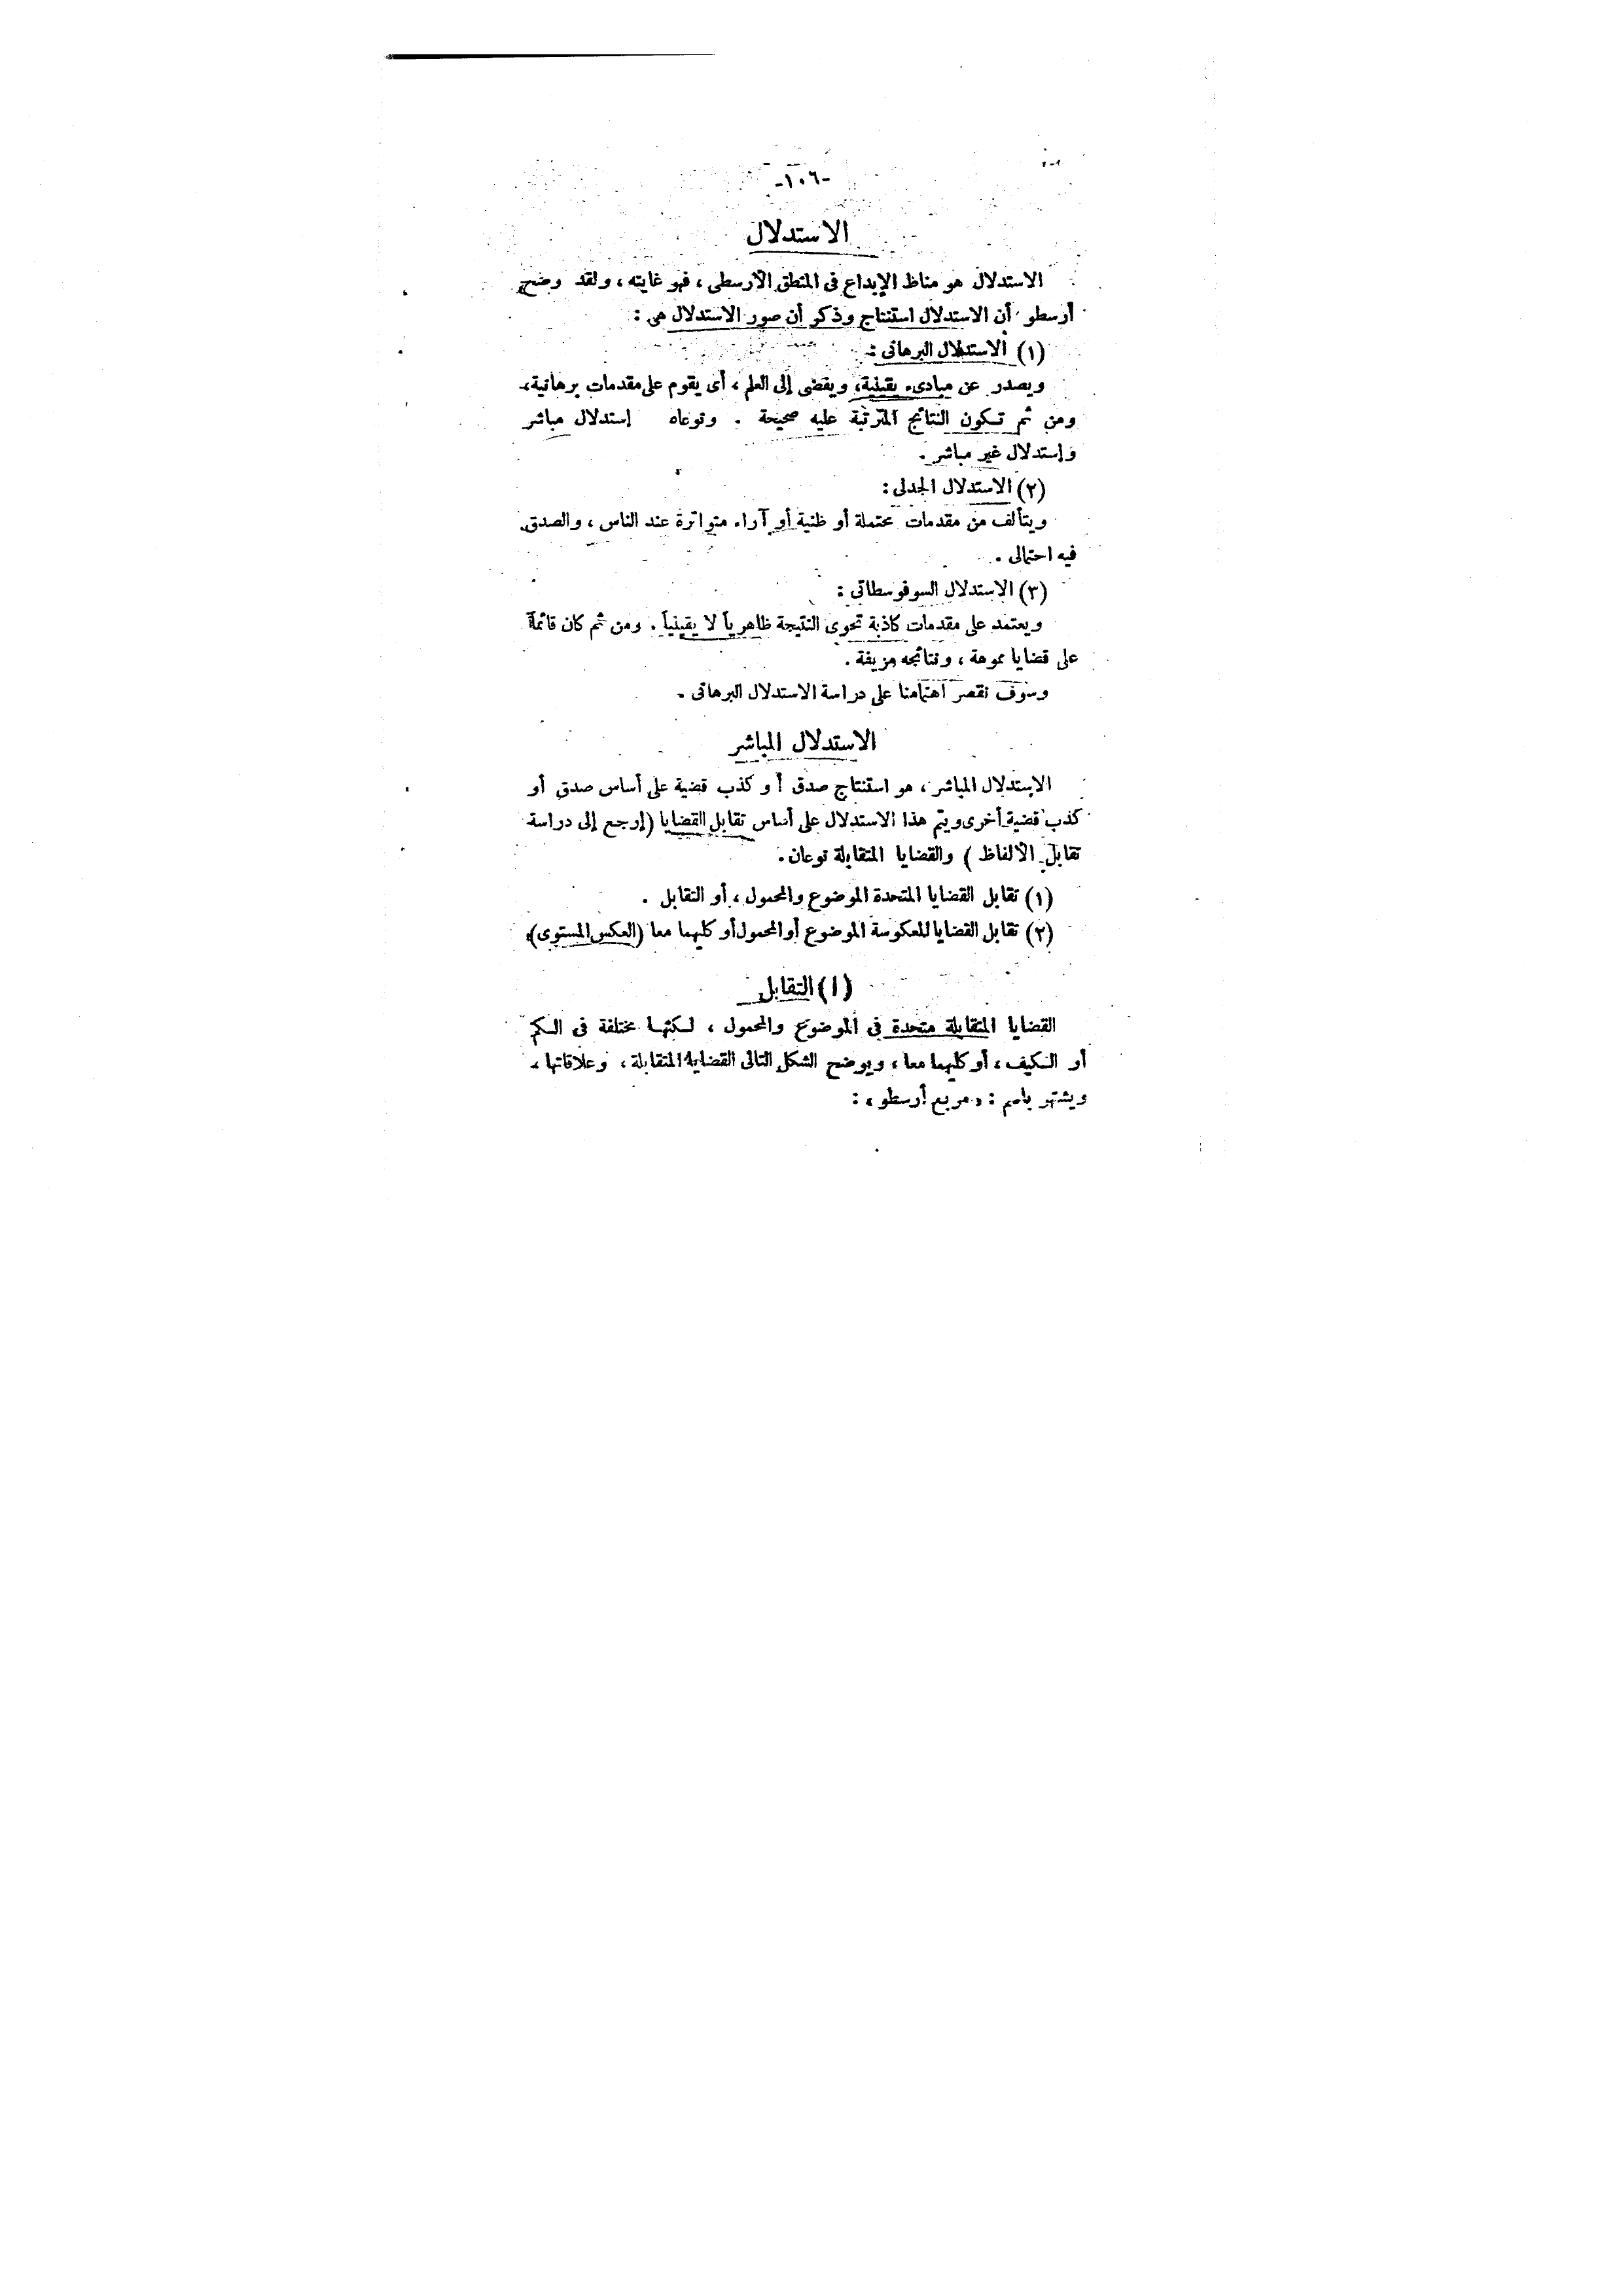 -١٠٦-
الاستدلال
الاستدلال هو مناط الإبداع فى المنطق الأرسطى ، فهو غايته ، ولقد وضح
أرسطو أن الاستدلال استنتاج وذكر أن صور الاستدلال هى :
(١) الاستدلال البرهانى :
ويصدر عن مبادىء يقينية، ويفضى إلى العلم ، أى يقوم على مقدمات برهانية،
ومن ثم تكون النتائج المترتبة عليه صحيحة . ونوعاه إستدلال مباشر
وإستدلال غير مباشر .
(٢) الاستدلال الجدلى :
ويتألف من مقدمات محتملة أو ظنية أو آراء متواترة عند الناس ، والصدق
فيه احتمالى .
(٣) الاستدلال السوفوسطائى :
ويعتمد على مقدمات كاذبة تحوى النتيجة ظاهرياً لا يقينياً . ومن ثم كان قائماً
على قضايا مموهة ، ونتائجه مزيفة .
وسوف نقصر اهتمامنا على دراسة الاستدلال البرهانى .
الاستدلال المباشر
الاستدلال المباشر ، هو استنتاج صدق أو كذب قضية على أساس صدق أو
كذب قضية أخرى ويتم هذا الاستدلال على أساس تقابل القضايا (إرجع إلى دراسة
تقابل الألفاظ ) والقضايا المتقابلة نوعان .
(١) تقابل القضايا المتحدة الموضوع والمحمول ، أو التقابل .
(٢) تقابل القضايا المعكوسة الموضوع أو المحمول أو كليهما معا (العكس المستوى)
(ا) التقابل
القضايا المتقابلة متحدة فى الموضوع والمحمول ، لكنها مختلفة فى الكم
أو الكيف ، أو كليهما معا ، ويوضح الشكل التالى القضايا المتقابلة ، وعلاقاتها ،
ويشتهر باسم : « مربع أرسطو » :